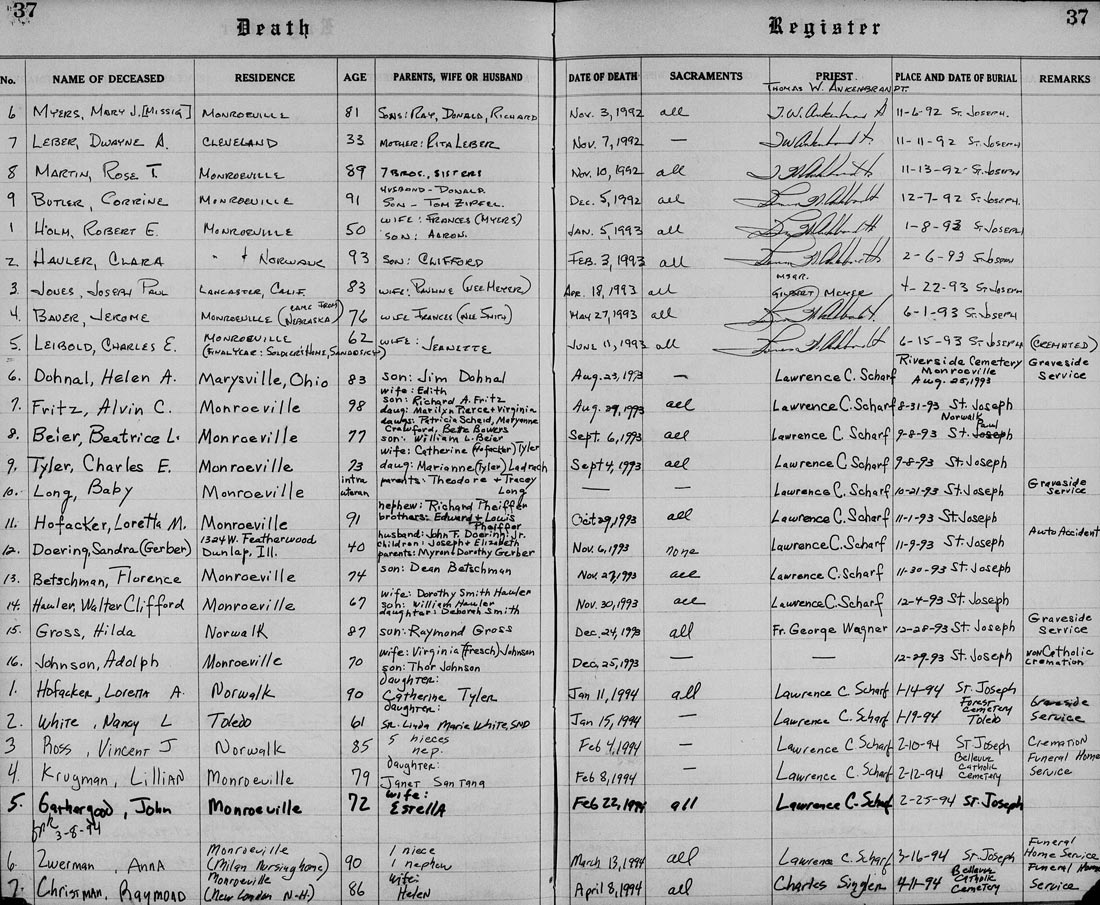 37 Death Register 37
No. NAME OF DECEASED RESIDENCE AGE PARENTS, WIFE OR HUSBAND DATE OF DEATH SACRAMENTS PRIEST PLACE AND DATE OF BURIAL REMARKS
THOMAS W. ANKENBRANDT.
6 MYERS, MARY J. [MISSIG] MONROEVILLE 81 SONS: RAY, DONALD, RICHARD NOV. 3, 1992 all T. W. Ankenbrandt 11-6-92 ST. JOSEPH.
7 LEBER, DWAYNE A. CLEVELAND 33 MOTHER: RITA LEBER NOV. 7, 1992 — 11-11-92 ST. JOSEPH
8 MARTIN, ROSE T. MONROEVILLE 89 7 BROS., SISTERS NOV. 10, 1992 all 11-13-92 ST. JOSEPH
9 BUTLER, CORRINE MONROEVILLE 91 HUSBAND - DONALD. DEC. 5, 1992 all 12-7-92 ST. JOSEPH.
SON - TOM ZIPFEL.
1 HOLM, ROBERT E. MONROEVILLE 50 WIFE: FRANCES (MYERS) JAN. 5, 1993 all 1-8-93 ST. JOSEPH
SON: AARON.
2. HAULER, CLARA " & NORWALK 93 SON: CLIFFORD FEB. 3, 1993 all 2-6-93 ST. JOSEPH
3. JONES, JOSEPH PAUL LANCASTER, CALIF. 83 WIFE: PAULINE (NEE MEYER) APR. 18, 1993 all MSGR. GILBERT MEYER 4-22-93 ST. JOSEPH
4. BAUER, JEROME MONROEVILLE (CAME FROM NEBRASKA) 76 WIFE FRANCES (NEE SMITH) MAY 27, 1993 all 6-1-93 ST. JOSEPH
5. LEIBOLD, CHARLES E. MONROEVILLE 62 WIFE: JEANETTE JUNE 11, 1993 all 6-15-93 ST. JOSEPH (CREMATED)
(FINAL YEAR: SOLDIER'S HOME, SANDUSKY)
6. Dohnal, Helen A. Marysville, Ohio 83 son: Jim Dohnal Aug. 23, 1993 — Lawrence C. Scharf Riverside Cemetery Monroeville Aug. 25, 1993 Graveside Service
7. Fritz, Alvin C. Monroeville 98 wife: Edith Aug. 29, 1993 all Lawrence C. Scharf 8-31-93 St. Joseph
son: Richard A. Fritz
daug: Marilyn Pierce + Virginia
8. Beier, Beatrice L. Monroeville 77 daugs: Patricia Scheid, Maryanne Sept. 6, 1993 all Lawrence C. Scharf 9-8-93 Norwalk St. Joseph Paul
Crawford, Bette Bowers
son: William L. Beier
9. Tyler, Charles E. Monroeville 73 wife: Catherine (Hofacker) Tyler Sept 4, 1993 all Lawrence C. Scharf 9-8-93 St. Joseph
daug: Marianne (Tyler) Ladrach
10. Long, Baby Monroeville intra uteran parents: Theodore + Tracey Long — — Lawrence C. Scharf 10-21-93 St. Joseph Graveside Service
11. Hofacker, Loretta M. Monroeville 91 nephew: Richard Pheiffer Oct 29, 1993 all Lawrence C. Scharf 11-1-93 St. Joseph
brothers: Edward + Louis Pheiffer
12. Doering, Sandra (Gerber) 1324 W. Featherwood Dunlap, Ill. 40 husband: John F. Doering, Jr. Nov. 6, 1993 none Lawrence C. Scharf 11-9-93 St. Joseph Auto Accident
children: Joseph + Elizabeth
parents: Myron + Dorothy Gerber
13. Betschman, Florence Monroeville 74 son: Dean Betschman Nov. 27, 1993 all Lawrence C. Scharf 11-30-93 St. Joseph
14. Hauler, Walter Clifford Monroeville 67 wife: Dorothy Smith Hauler Nov. 30, 1993 all Lawrence C. Scharf 12-4-93 St. Joseph
son: William Hauler
daughter: Deborah Smith
15. Gross, Hilda Norwalk 87 son: Raymond Gross Dec. 24, 1993 all Fr. George Wagner 12-28-93 St. Joseph Graveside Service
16. Johnson, Adolph Monroeville 70 wife: Virginia (Fresch) Johnson Dec. 25, 1993 — — 12-29-93 St. Joseph non Catholic cremation
son: Thor Johnson
1. Hofacker, Loretta A. Norwalk 90 daughter: Catherine Tyler Jan 11, 1994 all Lawrence C. Scharf 1-14-94 St. Joseph
2. White, Nancy L Toledo 61 daughter: Sr. Linda Marie White, SND Jan 15, 1994 — Lawrence C. Scharf 1-19-94 Forest Cemetery Toledo Graveside Service
3 Ross, Vincent J Norwalk 85 5 nieces nep. Feb 4, 1994 — Lawrence C Scharf 2-10-94 St Joseph Cremation
4. Krugman, Lillian Monroeville 79 daughter: Janet Santana Feb 8, 1994 — Lawrence C. Scharf 2-12-94 Bellevue Catholic Cemetery Funeral Home Service
5. Gathergood, John Monroeville 72 wife: Estella Feb 22, 1994 all Lawrence C. Scharf 2-25-94 St. Joseph
3-8-94
6 Zwerman, Anna Monroeville (Milan Nursing home) 90 1 niece 1 nephew March 13, 1994 all Lawrence C. Scharf 3-16-94 St. Joseph Funeral Home Service
7. Christman, Raymond Monroeville (New London N-H) 86 wife: Helen April 8, 1994 all Charles Singler 4-11-94 Bellevue Catholic Cemetery Funeral Home Service